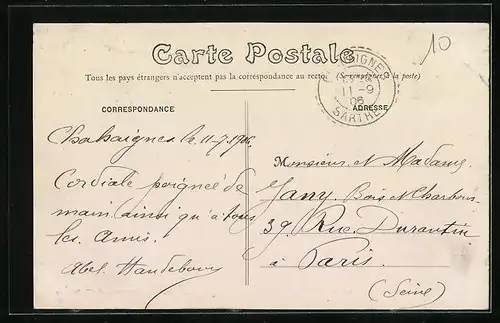 10
Carte Postale
Tous les pays étrangers n'acceptent pas la correspondance au recto (Se renseigner à la poste)
CORRESPONDANCE
11 - 9
06
SARTHE
ADRESSE
Chahaignes le 11-7 1906
Cordiale poignée de
main ainsi qu'à tous
les Amis.
Abel
Monsieur et Madame
Jany Bois et Charbons
39 Rue Durantin
à Paris.
(Seine)